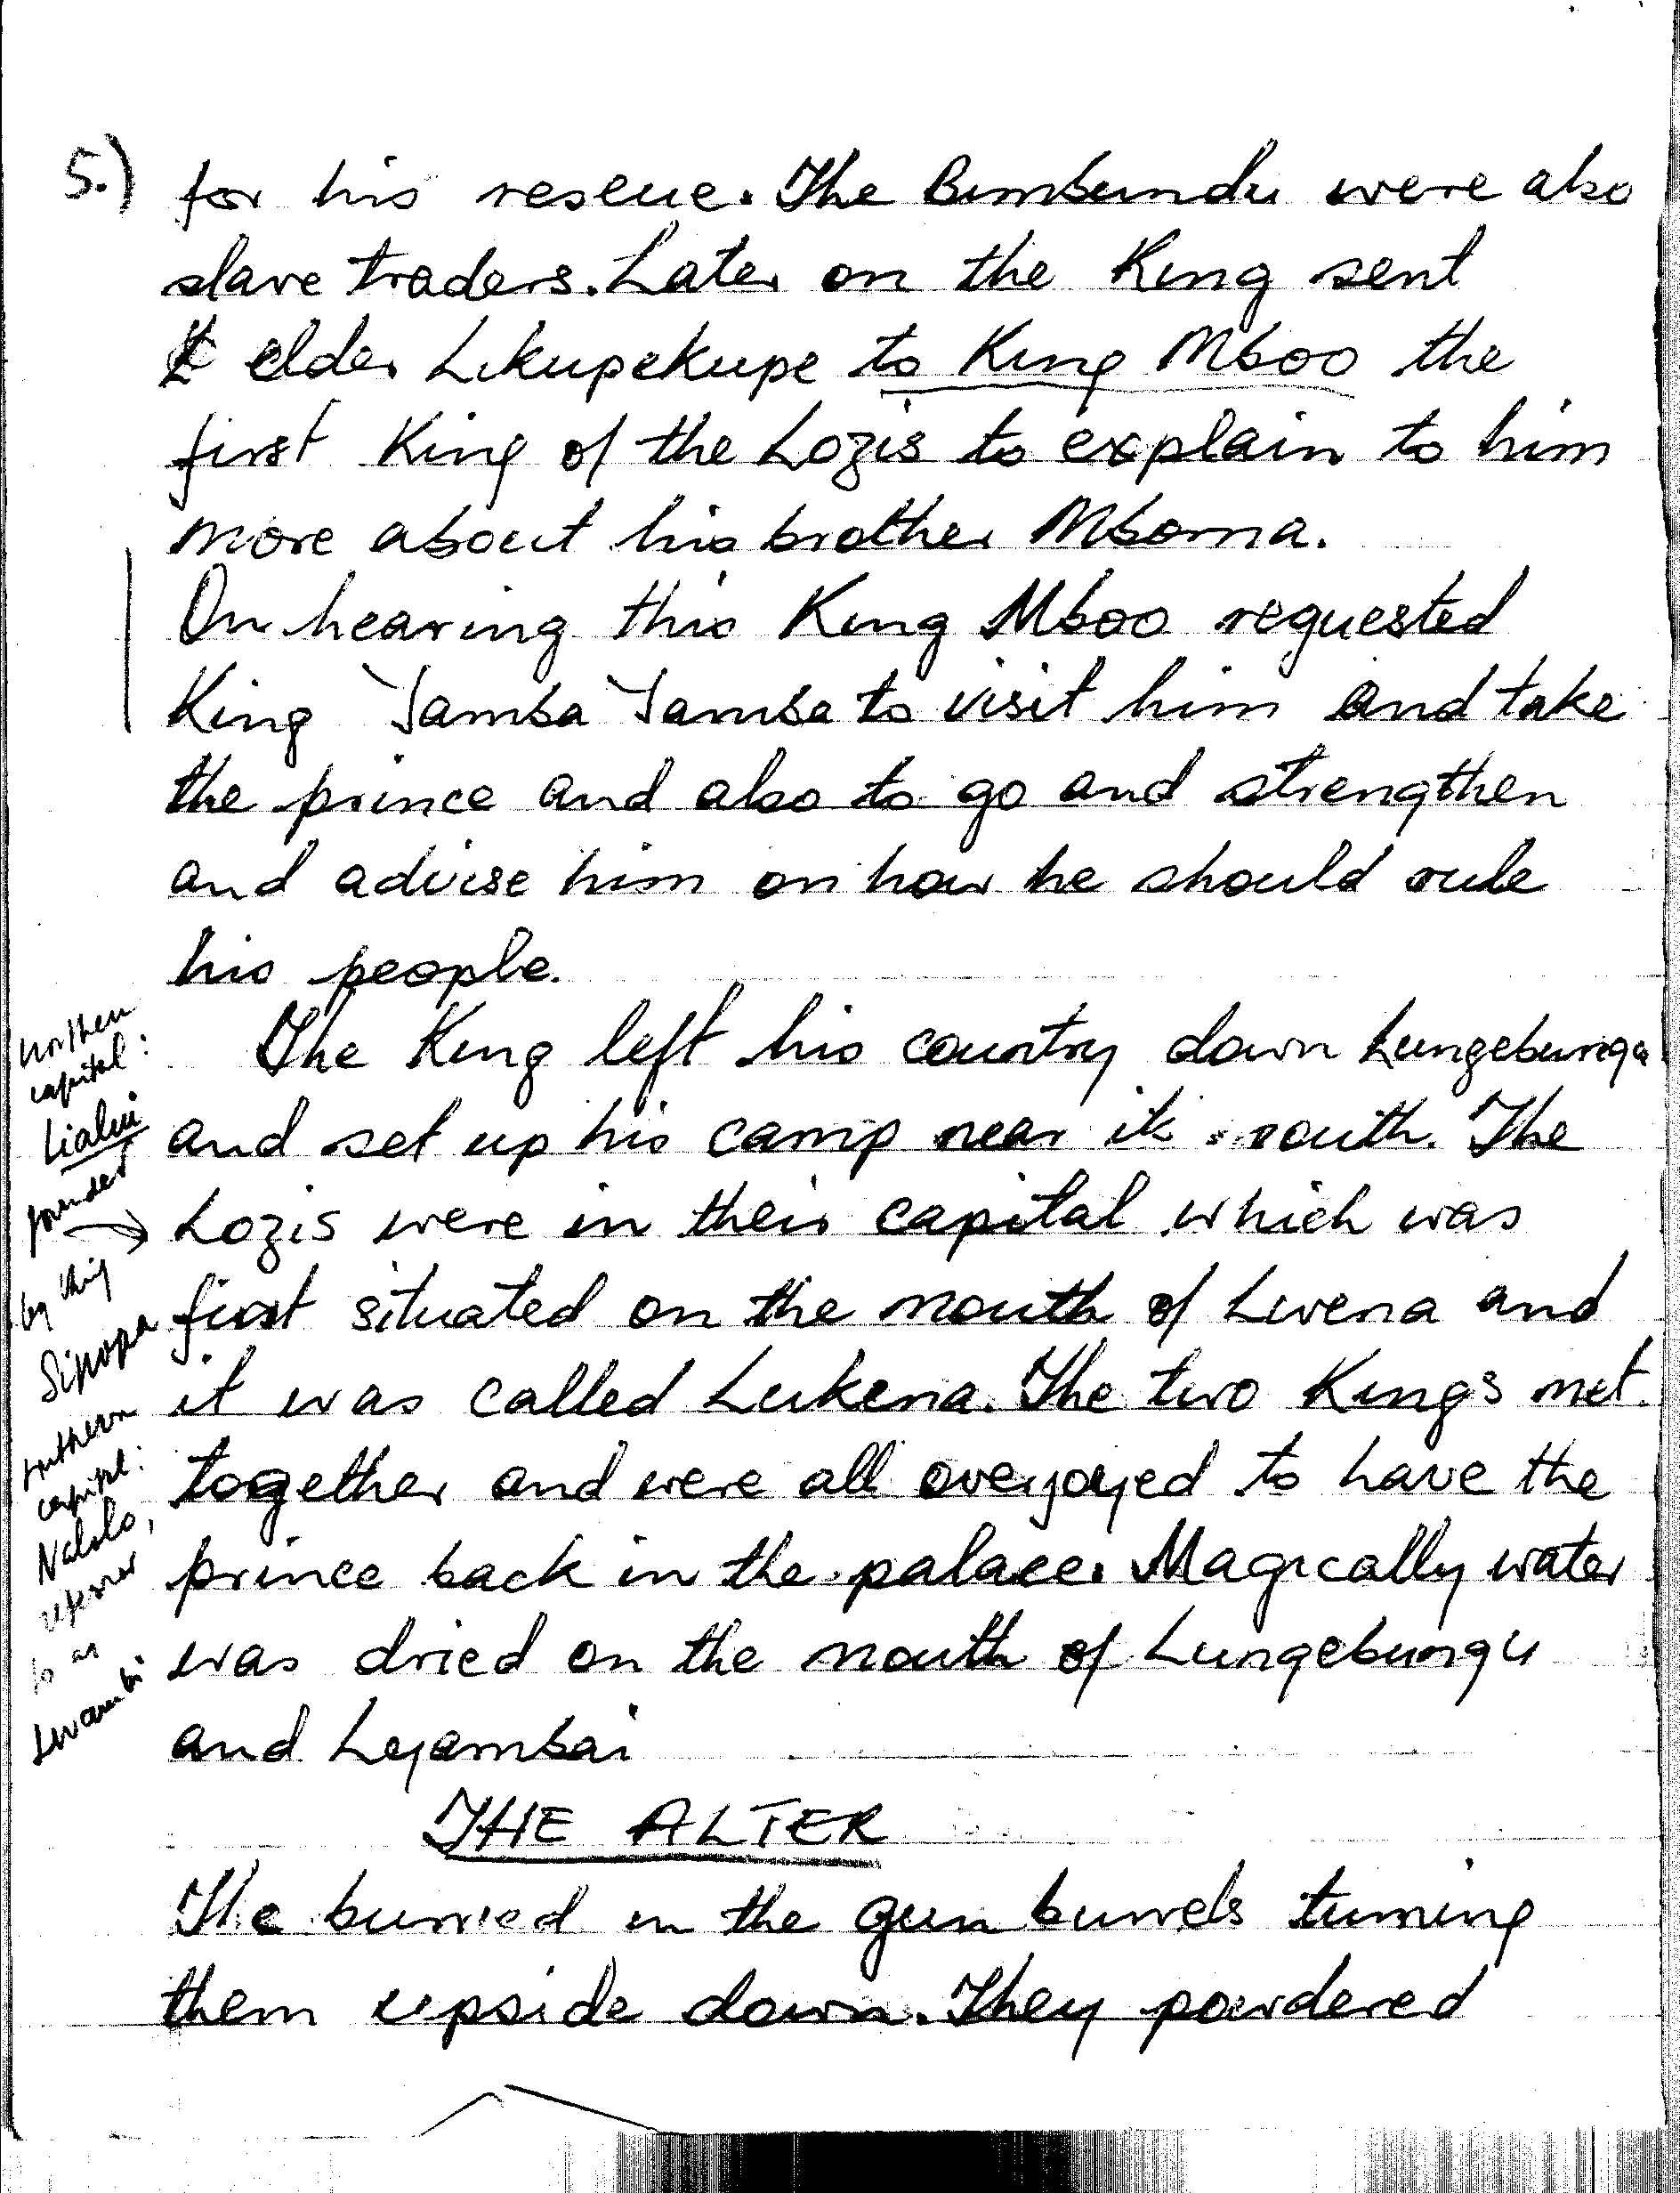 5.) for his rescue. The Bimbundu were also
slave traders. Later on the King sent
elder Likupekupe to King Mboo the
first King of the Lozis to explain to him
more about his brother Mboma.
On hearing this King Mboo requested
King Yamba Yamba to visit him and take
the prince and also to go and strengthen
and advise him on how he should rule
his people.
The King left his country down Lungebunga
and set up his camp near it south. The
Lozis were in their capital which was
first situated on the mouth of Lwena and
it was called Lukena. The two Kings met
together and were all overjoyed to have the
prince back in the palace. Magically water
was dried on the mouth of Lungebungu
and Lyambai
THE ALTER
The burried in the gun burrels turning
them upside down. They powdered
northern
capital:
Lialui
founded
by King
Sipopa
southern
capital:
Nalolo,
referred
to as
Lwambi